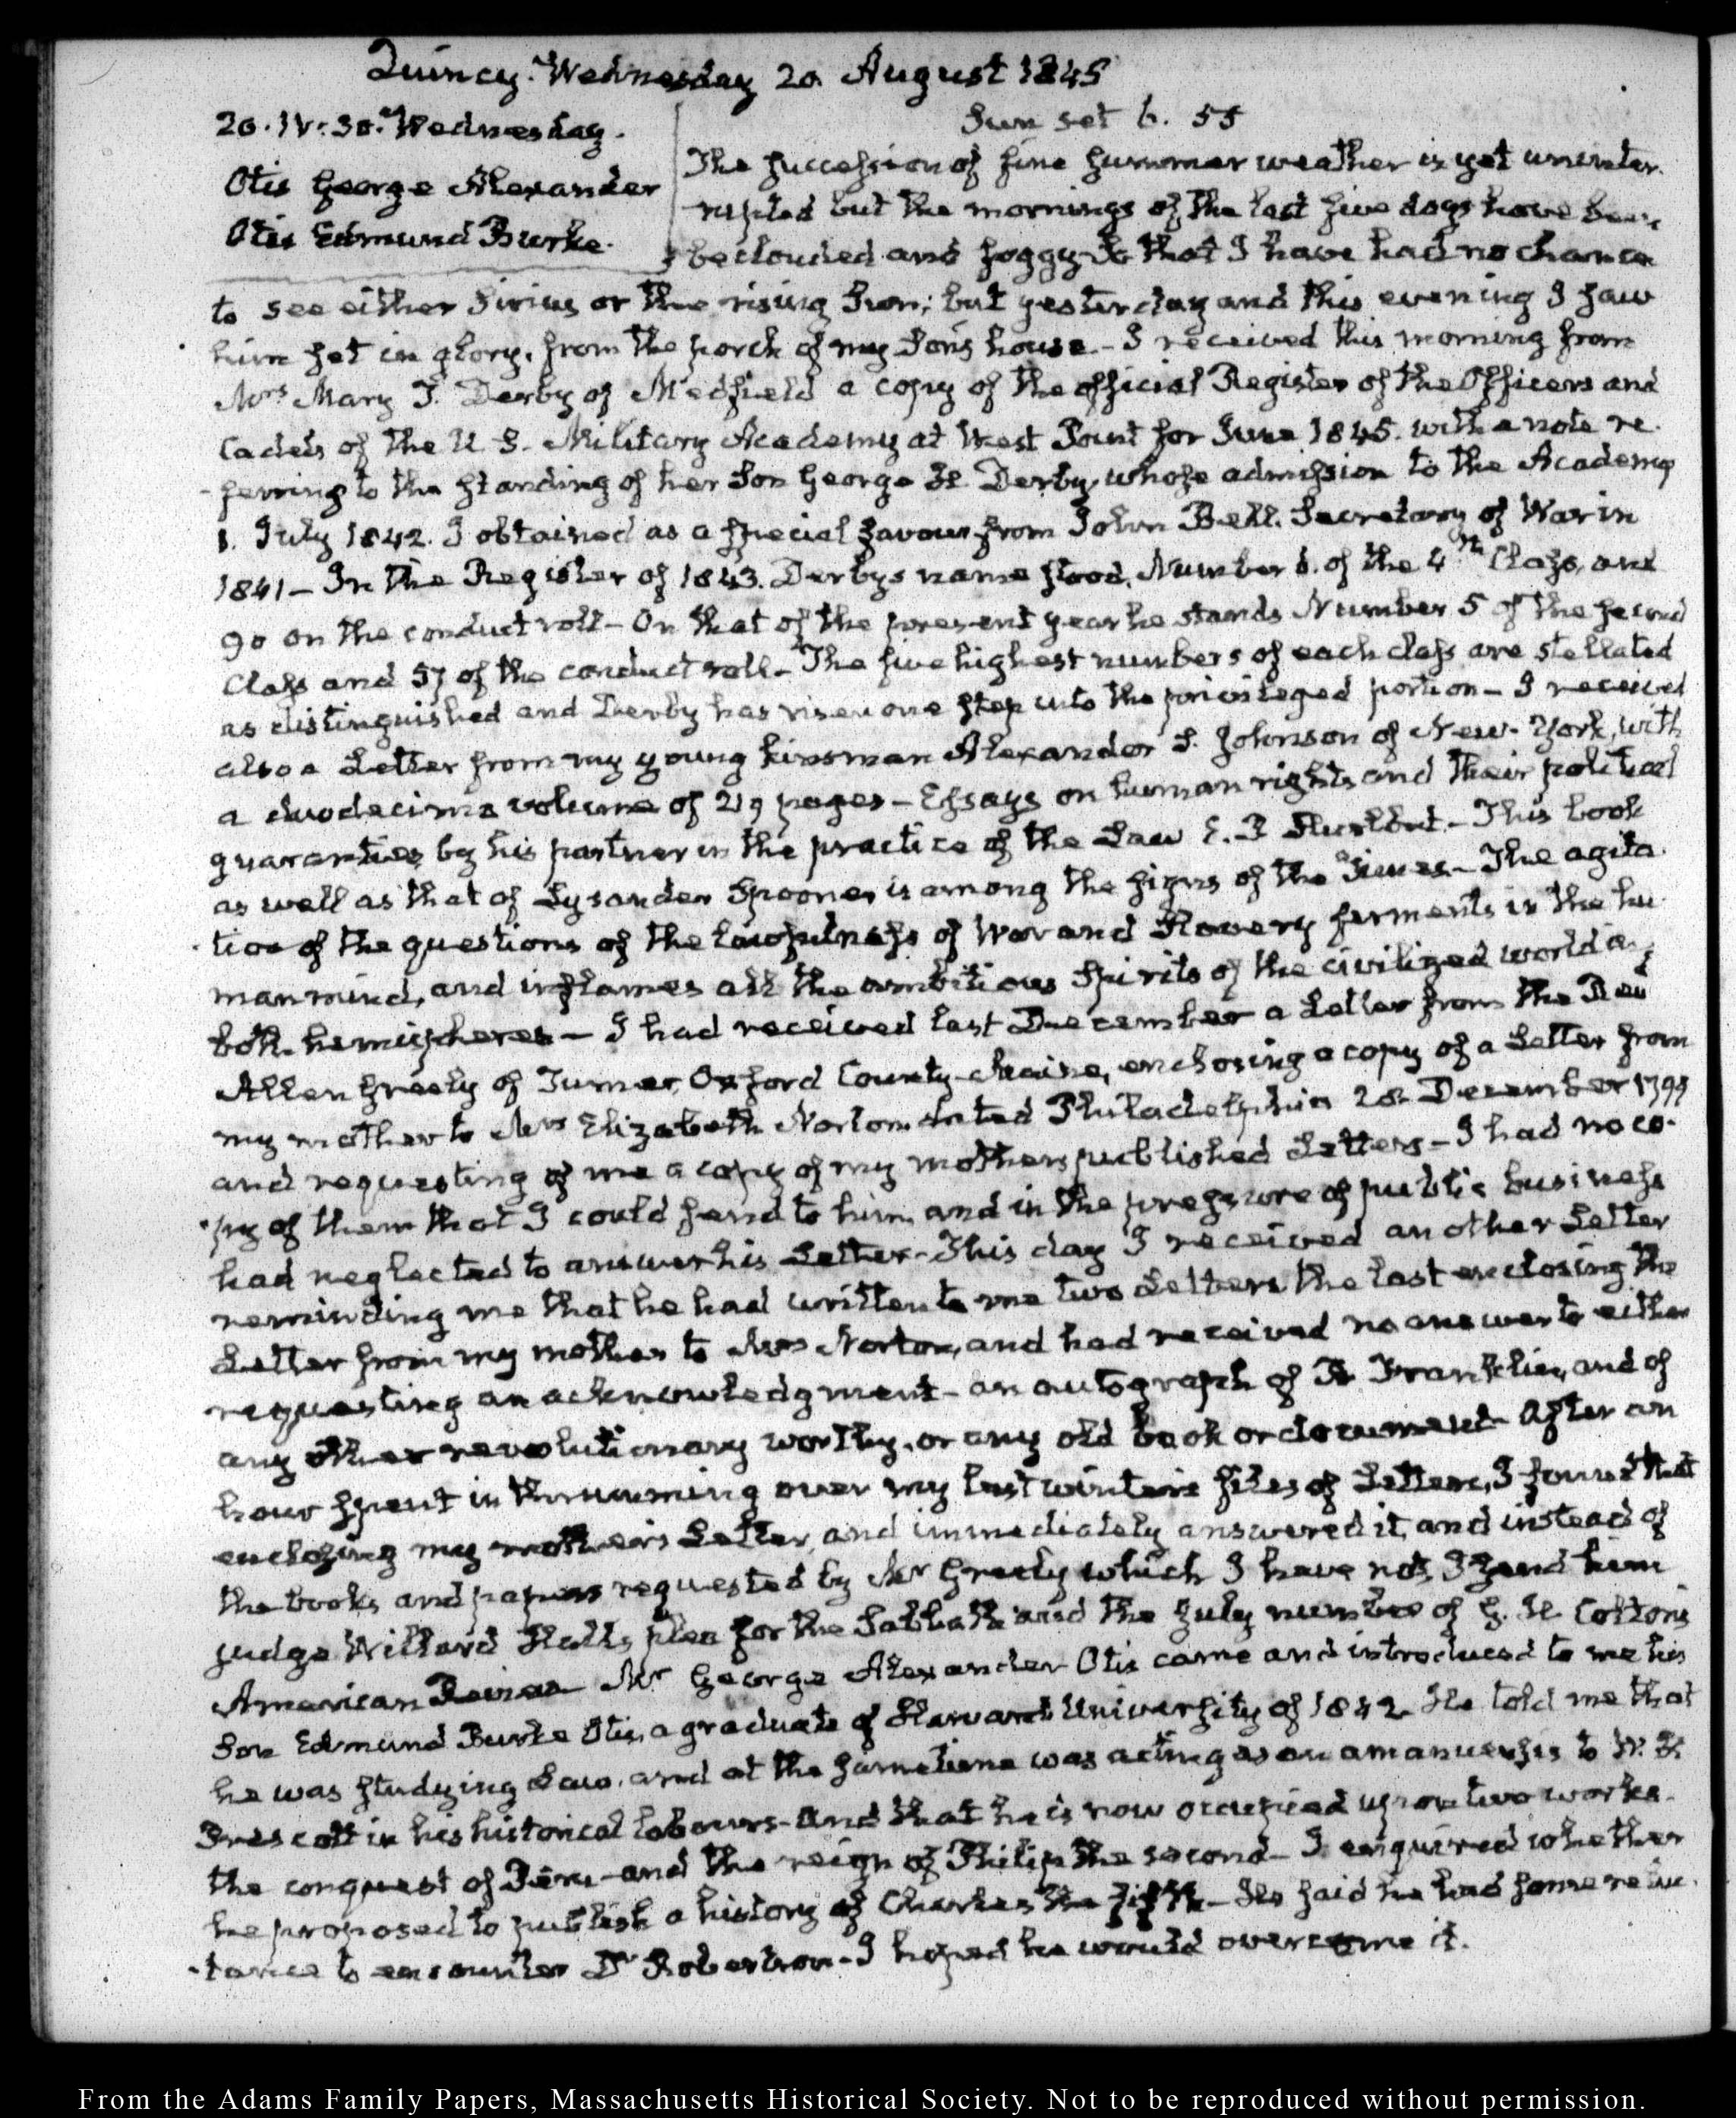 Quincy. Wednesday 20. August 1845
20. IV:30. Wednesday.
Otis George Alexander
Otis Edmund Burke.
Sun set 6. 55
The succession of fine summer weather is yet uninter-
rupted but the mornings of the last five days have been
beclouded and foggy so that I have had no chance
to see either Sirius or the rising Sun; but yesterday and this evening I saw
him set in glory, from the porch of my Son's house - I received this morning from
Mrs. Mary T. Derby of Medfield a copy of the official Register of the Officers and
Cadets of the U. S. Military Academy at West Point for June 1845. with a note re-
ferring to the standing of her Son George H. Derby, whose admission to the Academy
1. July 1842. I obtained as a special favour from John Bell. Secretary of War in
1841 - In the Register of 1843. Derby's name stood, Number 6. of the 4th Class, and
90 on the conduct roll - On that of the present year he stands Number 5 of the second
Class and 57 of the conduct roll - The five highest numbers of each class are stellated
as distinguished and Derby has risen one step into the privileged portion - I received
also a Letter from my young kinsman Alexander S. Johnson of New-York, with
a duodecimo volume of 219 pages - Essays on human rights and their political
guaranties by his partner in the practice of the Law E. P. Hurlbut. - This book
as well as that of Lysander Spooner is among the signs of the Times - The agita-
tion of the questions of the lawfulness of War and Slavery ferments in the hu-
man mind, and inflames all the ambitious Spirits of the civilized world in
both hemispheres - I had received last December a Letter from the Rev
Allen Greely of Turner, Oxford County Maine, enclosing a copy of a Letter from
my mother to Mrs Elizabeth Norton dated Philadelphia 28. December 1799
and requesting of me a copy of my mother's published Letters - I had no co-
py of them that I could send to him, and in the pressure of public business
had neglected to answer his Letter - This day I received another Letter
reminding me that he had written to me two Letters the last enclosing the
Letter from my mother to Mrs Norton, and had received no answer to either
requesting an acknowledgment - an autograph of Dr Franklin, and of
any other revolutionary worthy, or any old book or document - After an
hour spent in thrumming over my last winter's files of Letters, I found that
enclosing my mother's Letter, and immediately answered it, and instead of
the books and papers requested by Mr Greely which I have not, I send him
judge Willard Hall's plea for the Sabbath and the July number of G. H. Colton's
American Review Mr George Alexander Otis came and introduced to me his
Son Edmund Burke Otis, a graduate of Harvard University of 1842. He told me that
he was studying Law, and at the same time was acting as an amanuensis to W. H.
Prescott in his historical labours - And that he is now occupied upon two works.
the conquest of Peru - and the reign of Philip the second - I enquired whether
he proposed to publish a history of Charles the fifth - He said he had some reluc-
tance to encounter Dr Robertson - I hoped he would overcome it.
From the Adams Family Papers, Massachusetts Historical Society. Not to be reproduced without permission.